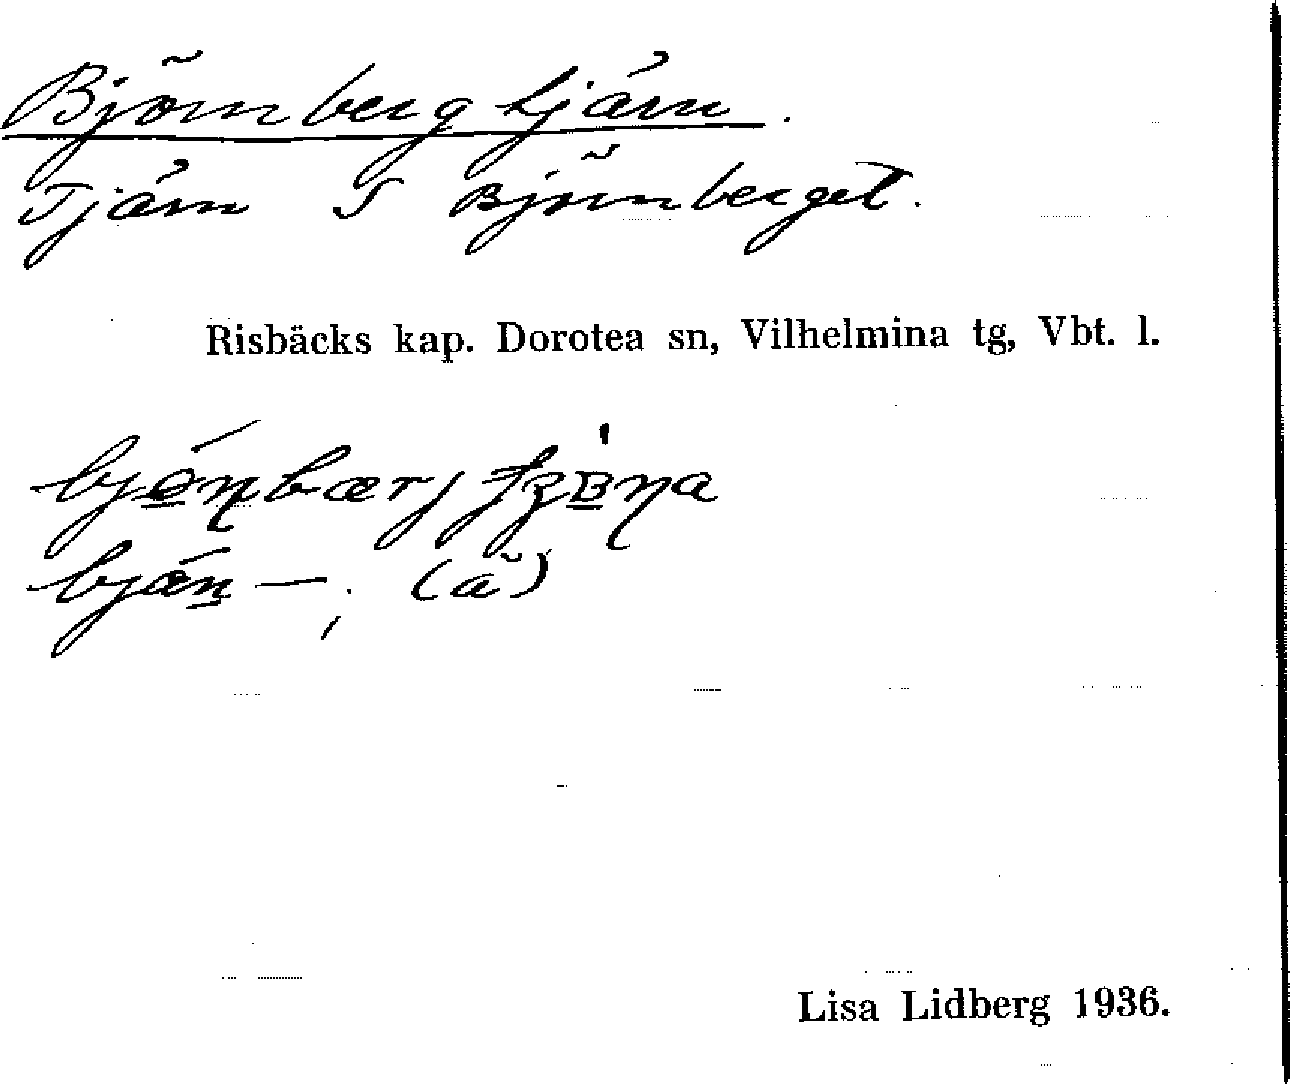 Björnbergtjärn.
Tjärn S Björnberget.
Risbäcks kap. Dorotea sn, Vilhelmina tg, Vbt. l.
(ä)
Lisa Lidberg 1936.